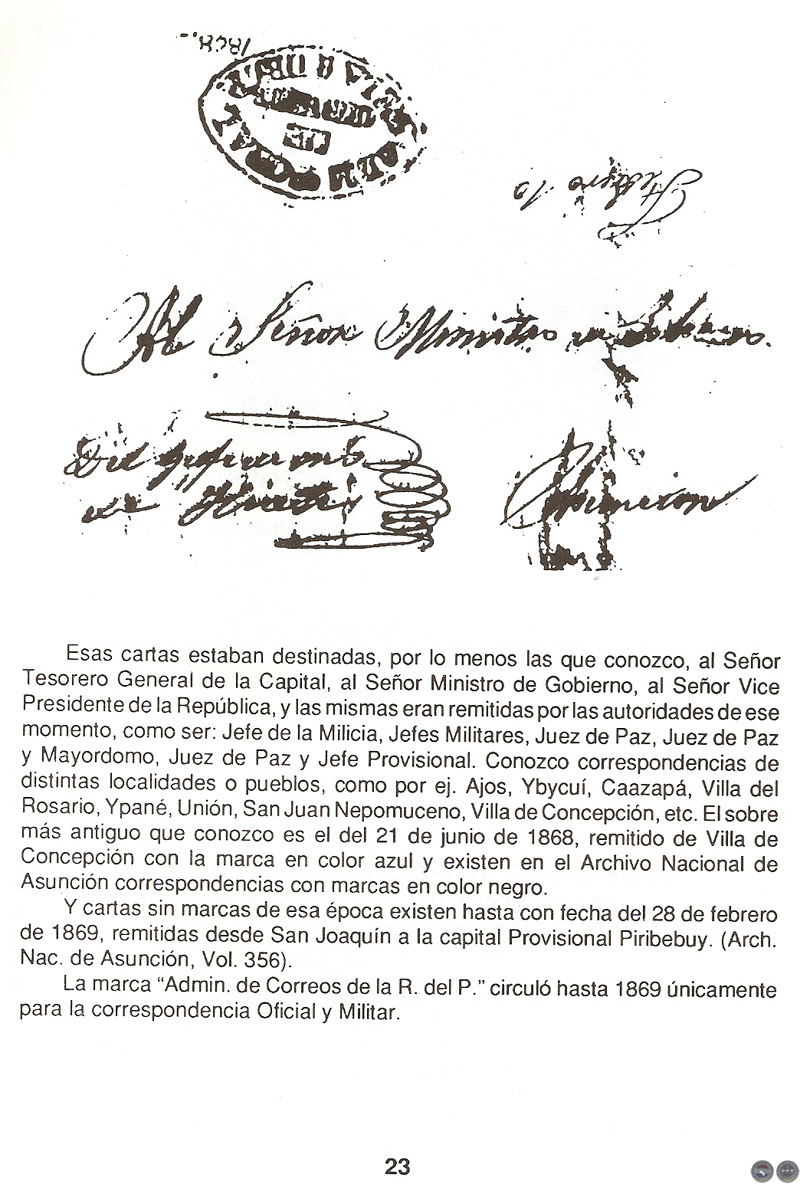 1868.-
Febrero 10
Al Señor Ministro de Gobierno.
Del
de
Asuncion
Esas cartas estaban destinadas, por lo menos las que conozco, al Señor
Tesorero General de la Capital, al Señor Ministro de Gobierno, al Señor Vice
Presidente de la República, y las mismas eran remitidas por las autoridades de ese
momento, como ser: Jefe de la Milicia, Jefes Militares, Juez de Paz, Juez de Paz
y Mayordomo, Juez de Paz y Jefe Provisional. Conozco correspondencias de
distintas localidades o pueblos, como por ej. Ajos, Ybycuí, Caazapá, Villa del
Rosario, Ypané, Unión, San Juan Nepomuceno, Villa de Concepción, etc. El sobre
más antiguo que conozco es el del 21 de junio de 1868, remitido de Villa de
Concepción con la marca en color azul y existen en el Archivo Nacional de
Asunción correspondencias con marcas en color negro.
Y cartas sin marcas de esa época existen hasta con fecha del 28 de febrero
de 1869, remitidas desde San Joaquín a la capital Provisional Piribebuy. (Arch.
Nac. de Asunción, Vol. 356).
La marca “Admin. de Correos de la R. del P.” circuló hasta 1869 únicamente
para la correspondencia Oficial y Militar.
23